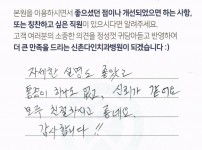 본원을 이용하시면서 좋으셨던 점이나 개선되었으면 하는 사항,
또는 칭찬하고 싶은 직원이 있으시다면 알려주세요.
고객 여러분의 소중한 의견을 정성껏 귀담아듣고 반영하여
더 큰 만족을 드리는 신촌다인치과병원이 되겠습니다 :)
자세한 설명도 좋았고
통증이 하나도 없고, 신뢰가 갔어요
모두 친절하시고 좋네요.
감사합니다!!